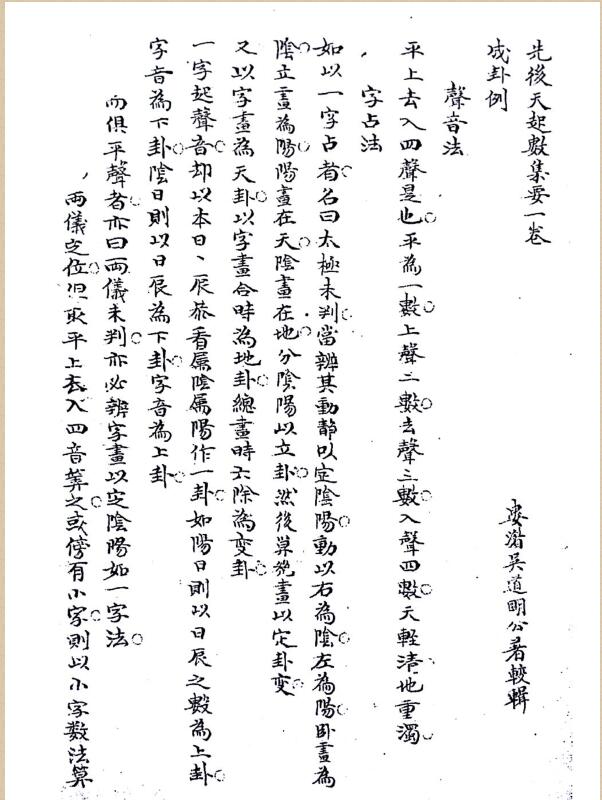 先後天起數集要一卷
婁潛吳道明公著較輯
成卦例
聲音法
平上去入四聲是也平為一數上聲二數去聲三數入聲四數天輕清地重濁
字占法
如以一字占者名曰太極未判當辨其動靜以定陰陽動以右為陰左為陽臥畫為
陰立畫為陽陽畫在天陰畫在地分陰陽以立卦然後算總畫以定卦變
又以字畫為天卦以字畫合時為地卦總畫時六除為變卦
一字起聲音却以本日丶辰恭看屬陰屬陽作一卦如陽日則以日辰之數為上卦
字音為下卦陰日則以日辰為下卦字音為上卦
兩俱平聲者亦曰兩儀未判亦必辨字畫以定陰陽如一字法
兩儀定位但取平上去入四音筭之或傍有小字則以小字數法算